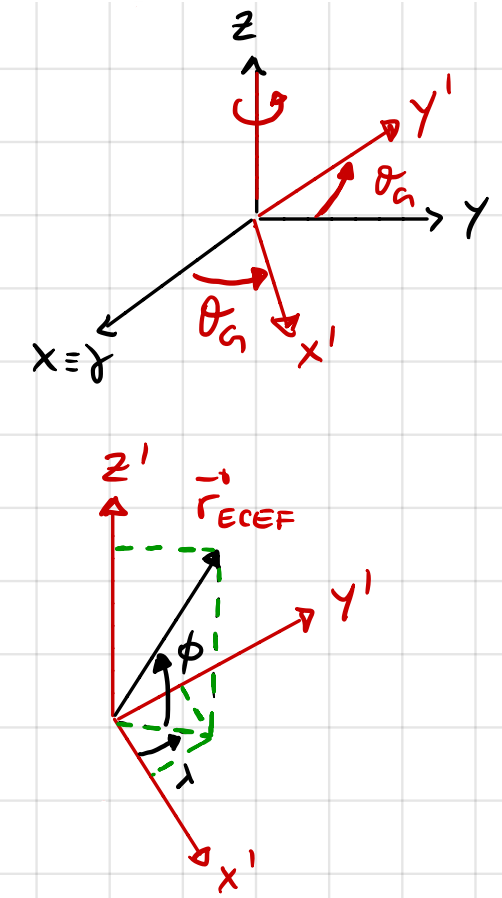 Z
Y'
θ_G
Y
θ_G
X ≡ γ
X'
Z'
r⃗_ECEF
Y'
ϕ
λ
X'